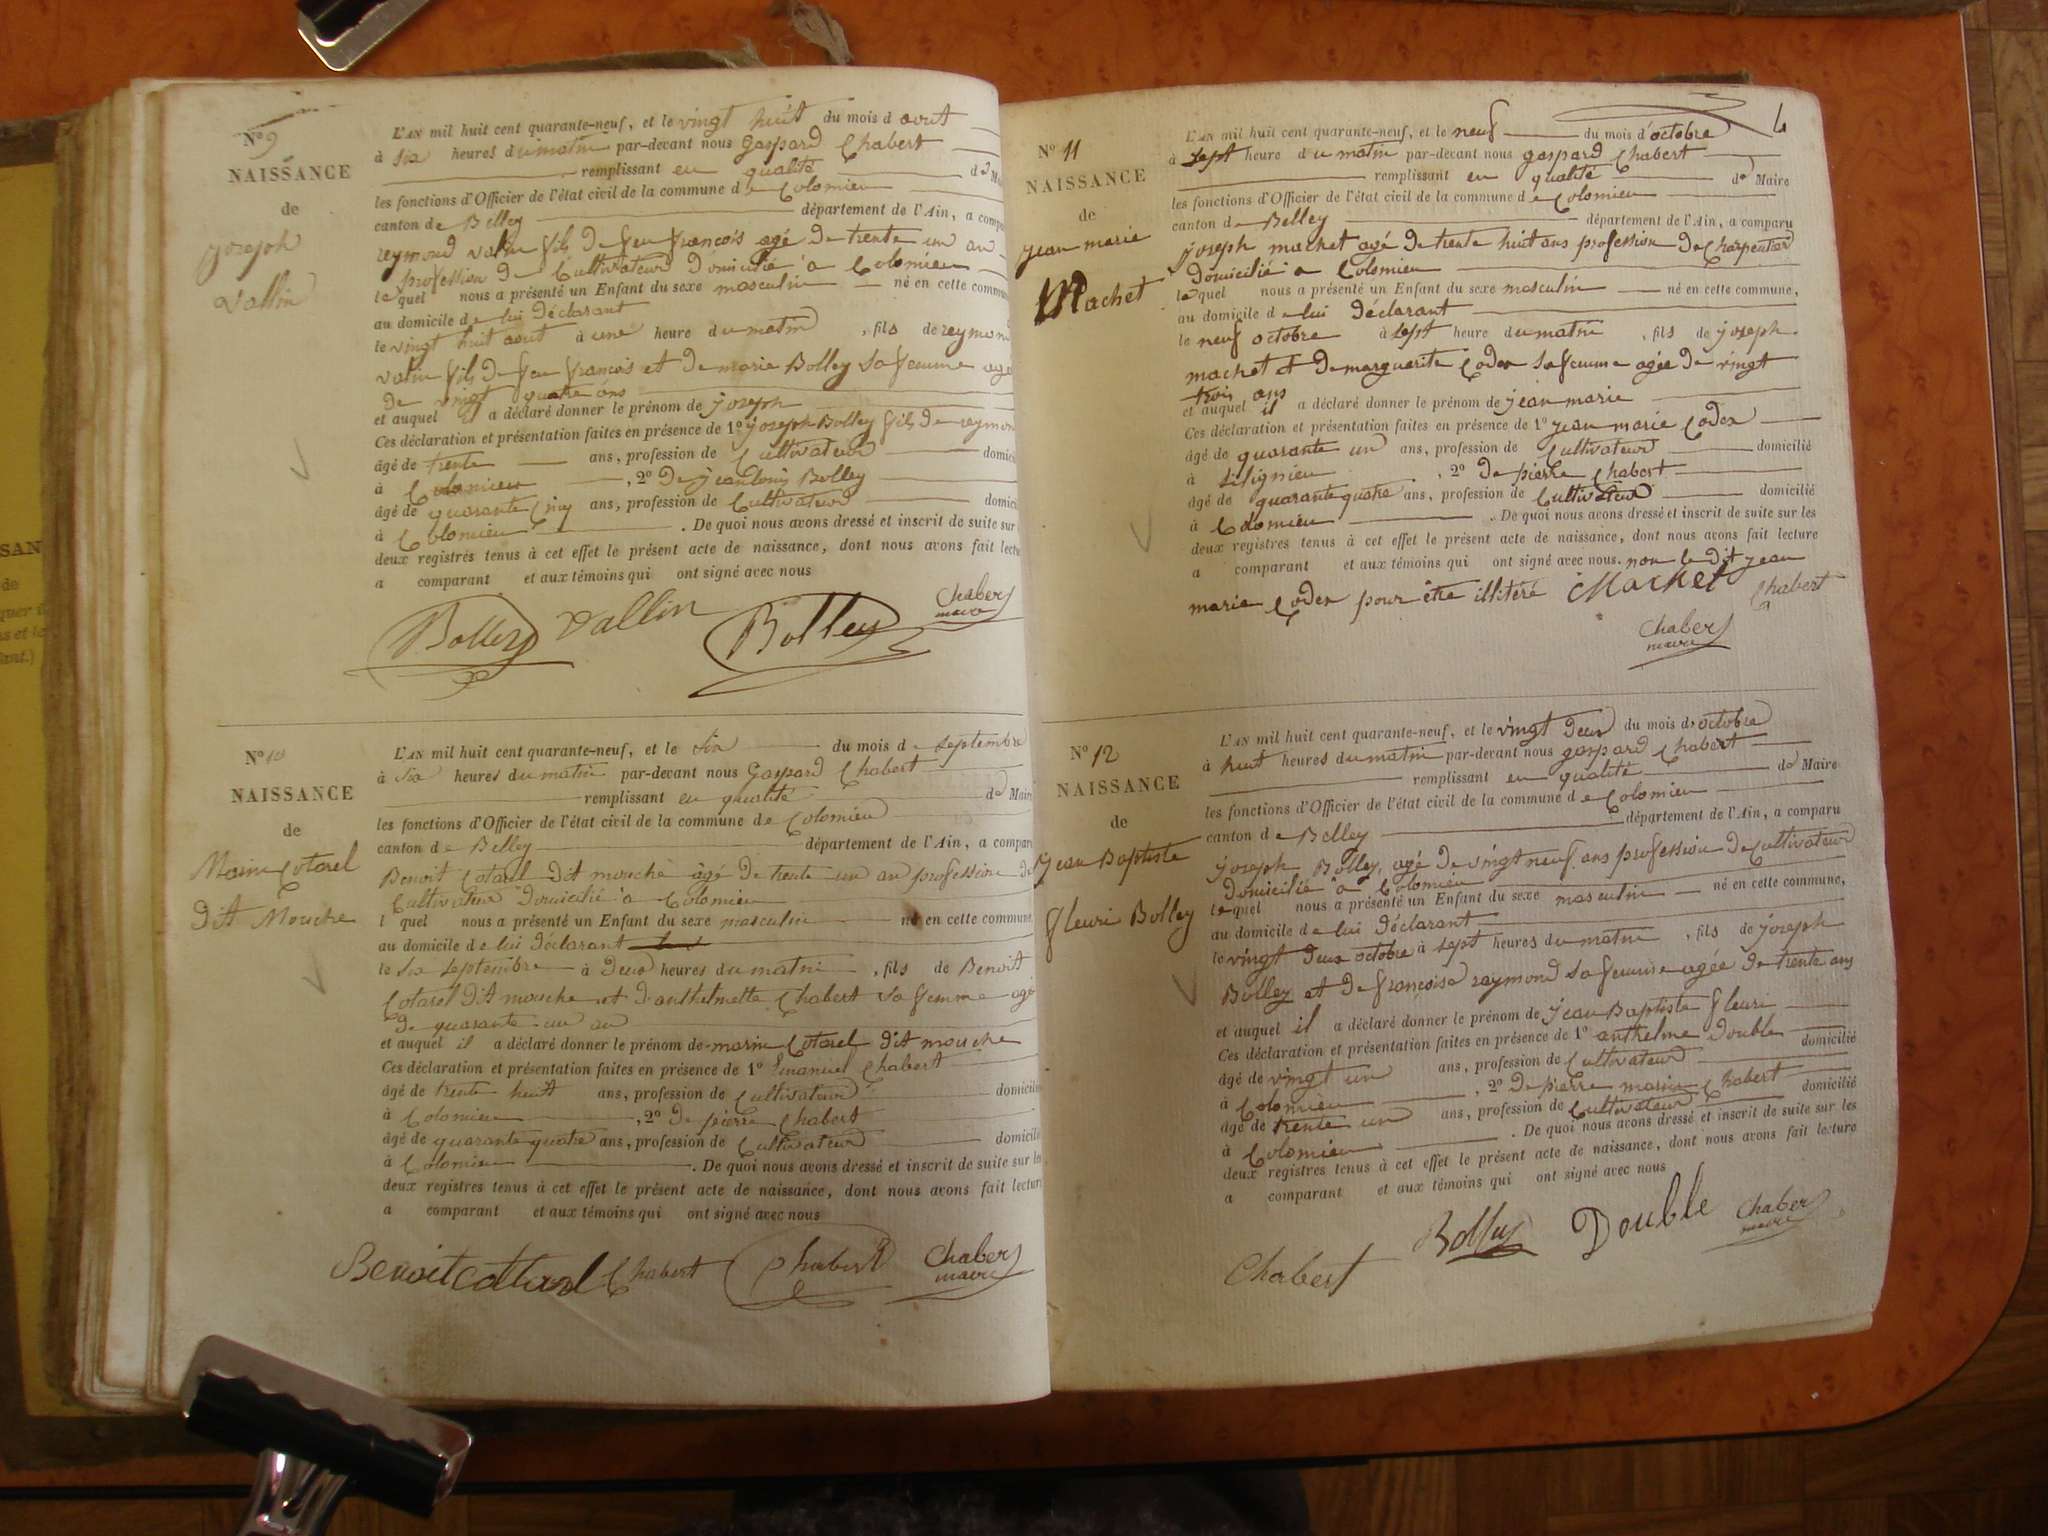 N° 9
NAISSANCE
de
joseph
Vallin
L'AN mil huit cent quarante-neuf, et le vingt huit du mois d aout
à six heures du matin par-devant nous Gaspard Chabert
remplissant en qualité de Mai
les fonctions d'Officier de l'état civil de la commune de Colomieu
canton de Belley département de l'Ain, a compa
reymond valin fils de feu francois agé de trente un an
profession de Cultivateur domicilié a Colomieu
lequel nous a présenté un Enfant du sexe masculin né en cette commun
au domicile de lui déclarant
le vingt huit aout à une heure du matin, fils de reymon
valin fils de feu francois et de marie Bolley sa femme agé
de vingt quatre ans
et auquel il a déclaré donner le prénom de joseph
Ces déclaration et présentation faites en présence de 1° joseph Bolley fils de reymon
âgé de trente ans, profession de Cultivateur domici
à Colomieu, 2° de jean louis Bolley
âgé de quarante cinq ans, profession de Cultivateur domici
à Colomieu. De quoi nous avons dressé et inscrit de suite sur
deux registres tenus à cet effet le présent acte de naissance, dont nous avons fait lectu
a comparant et aux témoins qui ont signé avec nous
Bolley Vallin Bolley Chabert
maire
N° 10
NAISSANCE
de
Marin Cotarel
dit Mouche
L'AN mil huit cent quarante-neuf, et le six du mois de septembre
à six heures du matin par-devant nous Gaspard Chabert
remplissant en qualité de Mair
les fonctions d'Officier de l'état civil de la commune de Colomieu
canton de Belley département de l'Ain, a compar
Benoit Cotarel dit mouche agé de trente un an profession de
Cultivateur domicilié a Colomieu
l quel nous a présenté un Enfant du sexe masculin né en cette commune
au domicile de lui déclarant
le six septembre à deux heures du matin, fils de Benoit
Cotarel dit mouche et d'anthelmette Chabert sa femme agé
de quarante un an
et auquel il a déclaré donner le prénom de marin Cotarel dit mouche
Ces déclaration et présentation faites en présence de 1° Emanuel Chabert
âgé de trente huit ans, profession de Cultivateur domicilié
à Colomieu, 2° de pierre Chabert
âgé de quarante quatre ans, profession de Cultivateur domicilié
à Colomieu. De quoi nous avons dressé et inscrit de suite sur les
deux registres tenus à cet effet le présent acte de naissance, dont nous avons fait lectur
a comparant et aux témoins qui ont signé avec nous
Benoit cottarel Chabert Chabert Chabert
maire
N° 11
NAISSANCE
de
jean marie
Machet
L'AN mil huit cent quarante-neuf, et le neuf du mois d'octobre
à sept heure du matin par-devant nous gaspard Chabert
remplissant en qualité de Maire
les fonctions d'Officier de l'état civil de la commune de Colomieu
canton de Belley département de l'Ain, a comparu
joseph machet agé de trente huit ans profession de Charpentier
domicilié a Colomieu
lequel nous a présenté un Enfant du sexe masculin né en cette commune,
au domicile de lui déclarant
le neuf octobre à sept heure du matin, fils de joseph
machet et de marguerite Coder sa femme agée de vingt
trois ans
et auquel il a déclaré donner le prénom de jean marie
Ces déclaration et présentation faites en présence de 1° jean marie Coder
âgé de quarante un ans, profession de Cultivateur domicilié
à silignieu, 2° de pierre Chabert
âgé de quarante quatre ans, profession de Cultivateur domicilié
à Colomieu. De quoi nous avons dressé et inscrit de suite sur les
deux registres tenus à cet effet le présent acte de naissance, dont nous avons fait lecture
a comparant et aux témoins qui ont signé avec nous. non le dit jean
marie Coder pour être illitéré Machet Chabert
Chabert
maire
N° 12
NAISSANCE
de
Jean Baptiste
fleuri Bolley
L'AN mil huit cent quarante-neuf, et le vingt deux du mois d'octobre
à huit heures du matin par-devant nous gaspard Chabert
remplissant en qualité de Maire
les fonctions d'Officier de l'état civil de la commune de Colomieu
canton de Belley département de l'Ain, a comparu
joseph Bolley, agé de vingt neuf ans profession de Cultivateur
domicilié a Colomieu
lequel nous a présenté un Enfant du sexe masculin né en cette commune,
au domicile de lui déclarant
le vingt deux octobre à sept heures du matin, fils de joseph
Bolley et de francoise raymond sa femme agée de trente ans
et auquel il a déclaré donner le prénom de jean Baptiste fleuri
Ces déclaration et présentation faites en présence de 1° anthelme double
âgé de vingt un ans, profession de Cultivateur domicilié
à Colomieu, 2° de pierre marin Chabert
âgé de trente un ans, profession de Cultivateur domicilié
à Colomieu. De quoi nous avons dressé et inscrit de suite sur les
deux registres tenus à cet effet le présent acte de naissance, dont nous avons fait lecture
a comparant et aux témoins qui ont signé avec nous
Chabert Bolley Double Chabert
maire